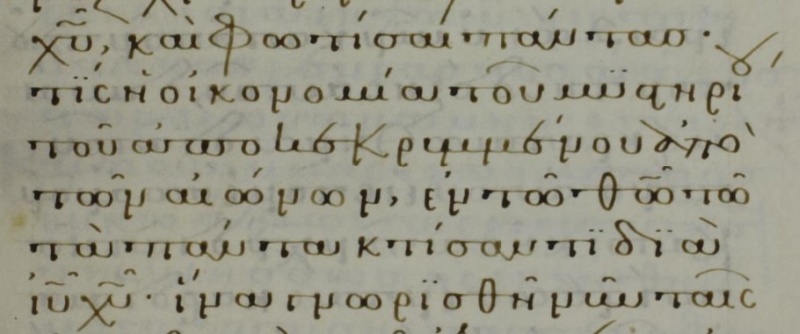 χῡ, καὶ φωτίσαι πάντασ·
τίς ἡ οἰκονομία τοῦ μυστηρί
ου τοῦ ἀποκεκρυμμένου ἀπὸ
τῶν αἰώνων, ἐν τῶ θῶ τῶ
τὰ πάντα κτίσαντι διὰ
ἰῡ χῡ· ἵνα γνωρισθῆ νῦν ταῖς